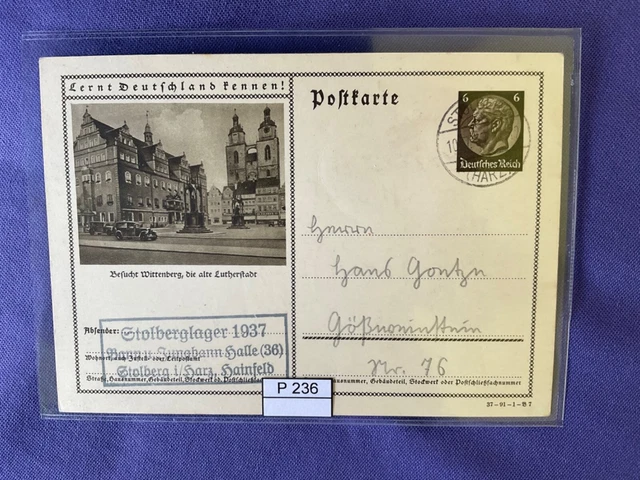 Lernt Deutschland kennen!
Besucht Wittenberg, die alte Lutherstadt
Absender:
Stolberglager 1937
Bann u. Jungbann Halle (36)
Stolberg i/Harz, Hainfeld
Wohnort, auch Zustell- oder Leitpostamt
Straße, Hausnummer, Gebäudeteil, Stockwerk od. Postschließfach
Postkarte
6 6
Deutsches Reich
ST
10
(HARZ)
Herrn
Hans
Nr. 76
Hausnummer, Gebäudeteil, Stockwerk oder Postschließfachnummer
37-91-1-B 7
P 236